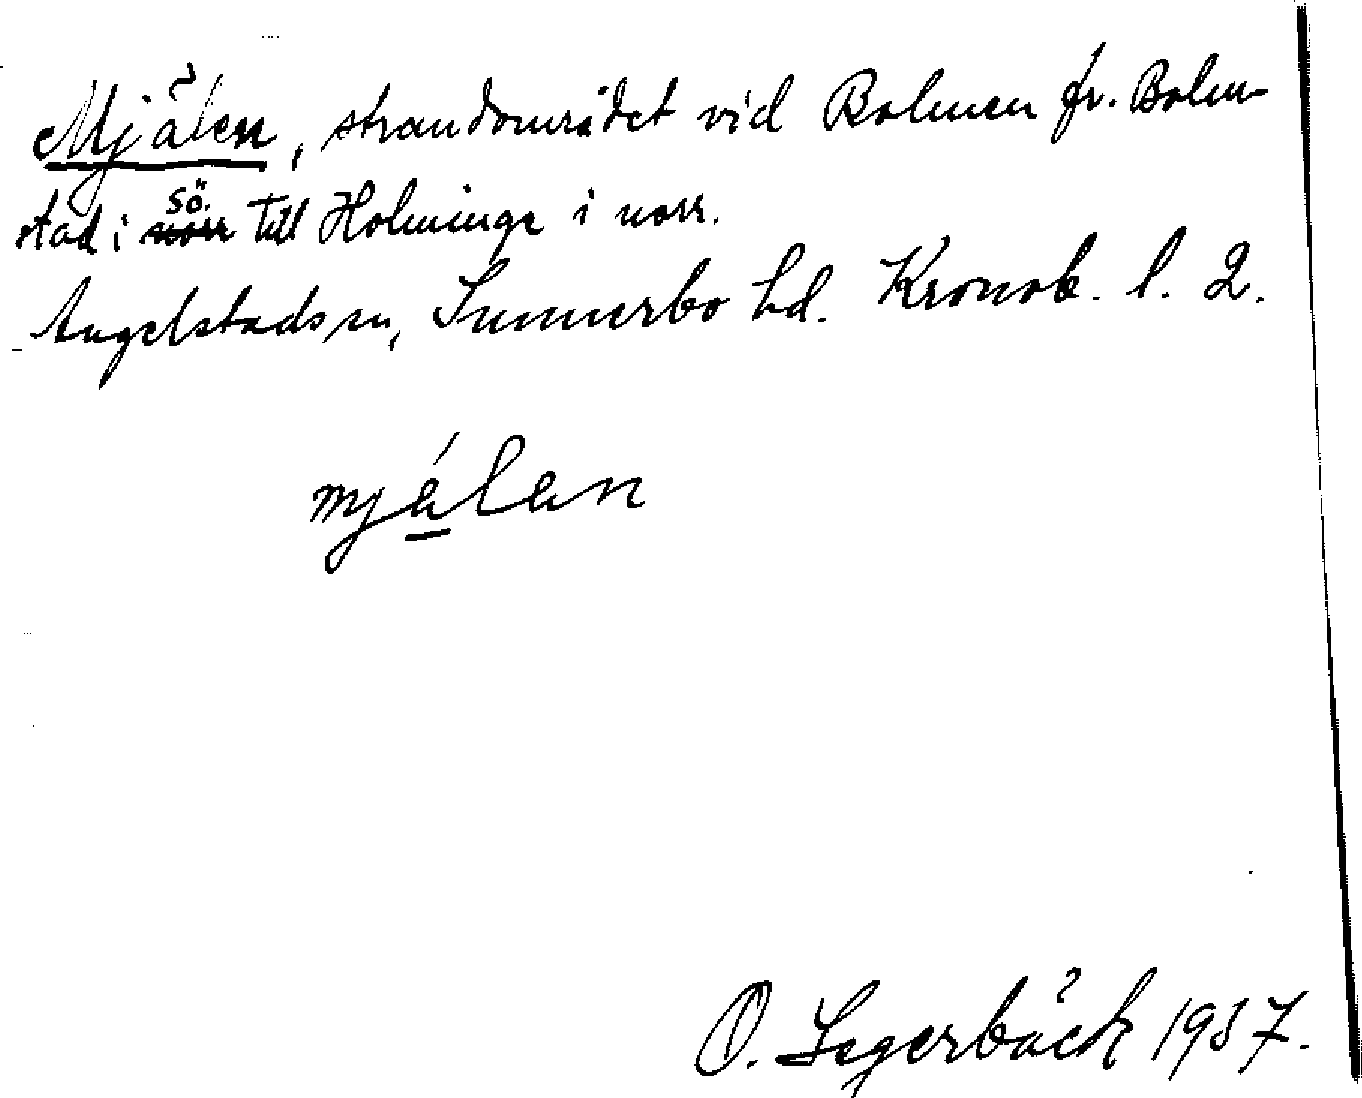 Mjälen, strandområdet vid Bolmen fr. Bolm-
stad i sö. till Holminge i norr.
Angelstads sn, Sunnerbo hd. Kronob. l. 2.
mjälan
O. Segerbäck 1937.